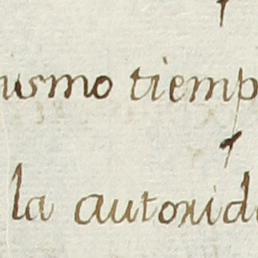 usmo tiemp
la autorid